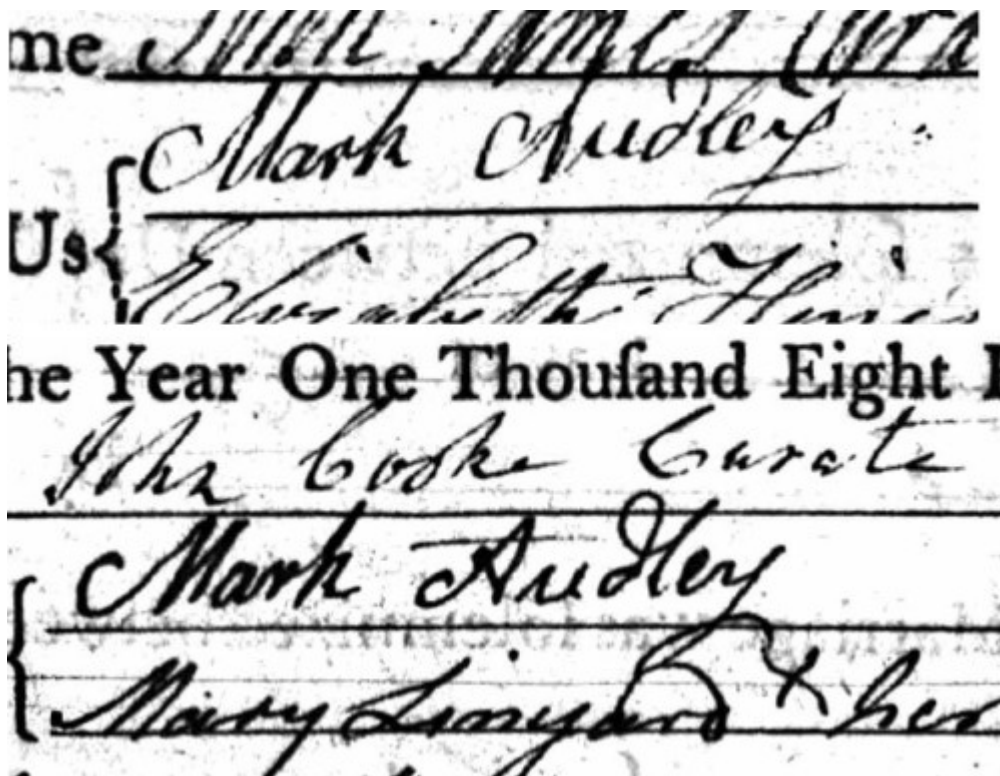 me
Mark Audley
Us
Elizabeth
he Year One Thouſand Eight
John Cooke Curate
Mark Audley
Mary Linyard x her